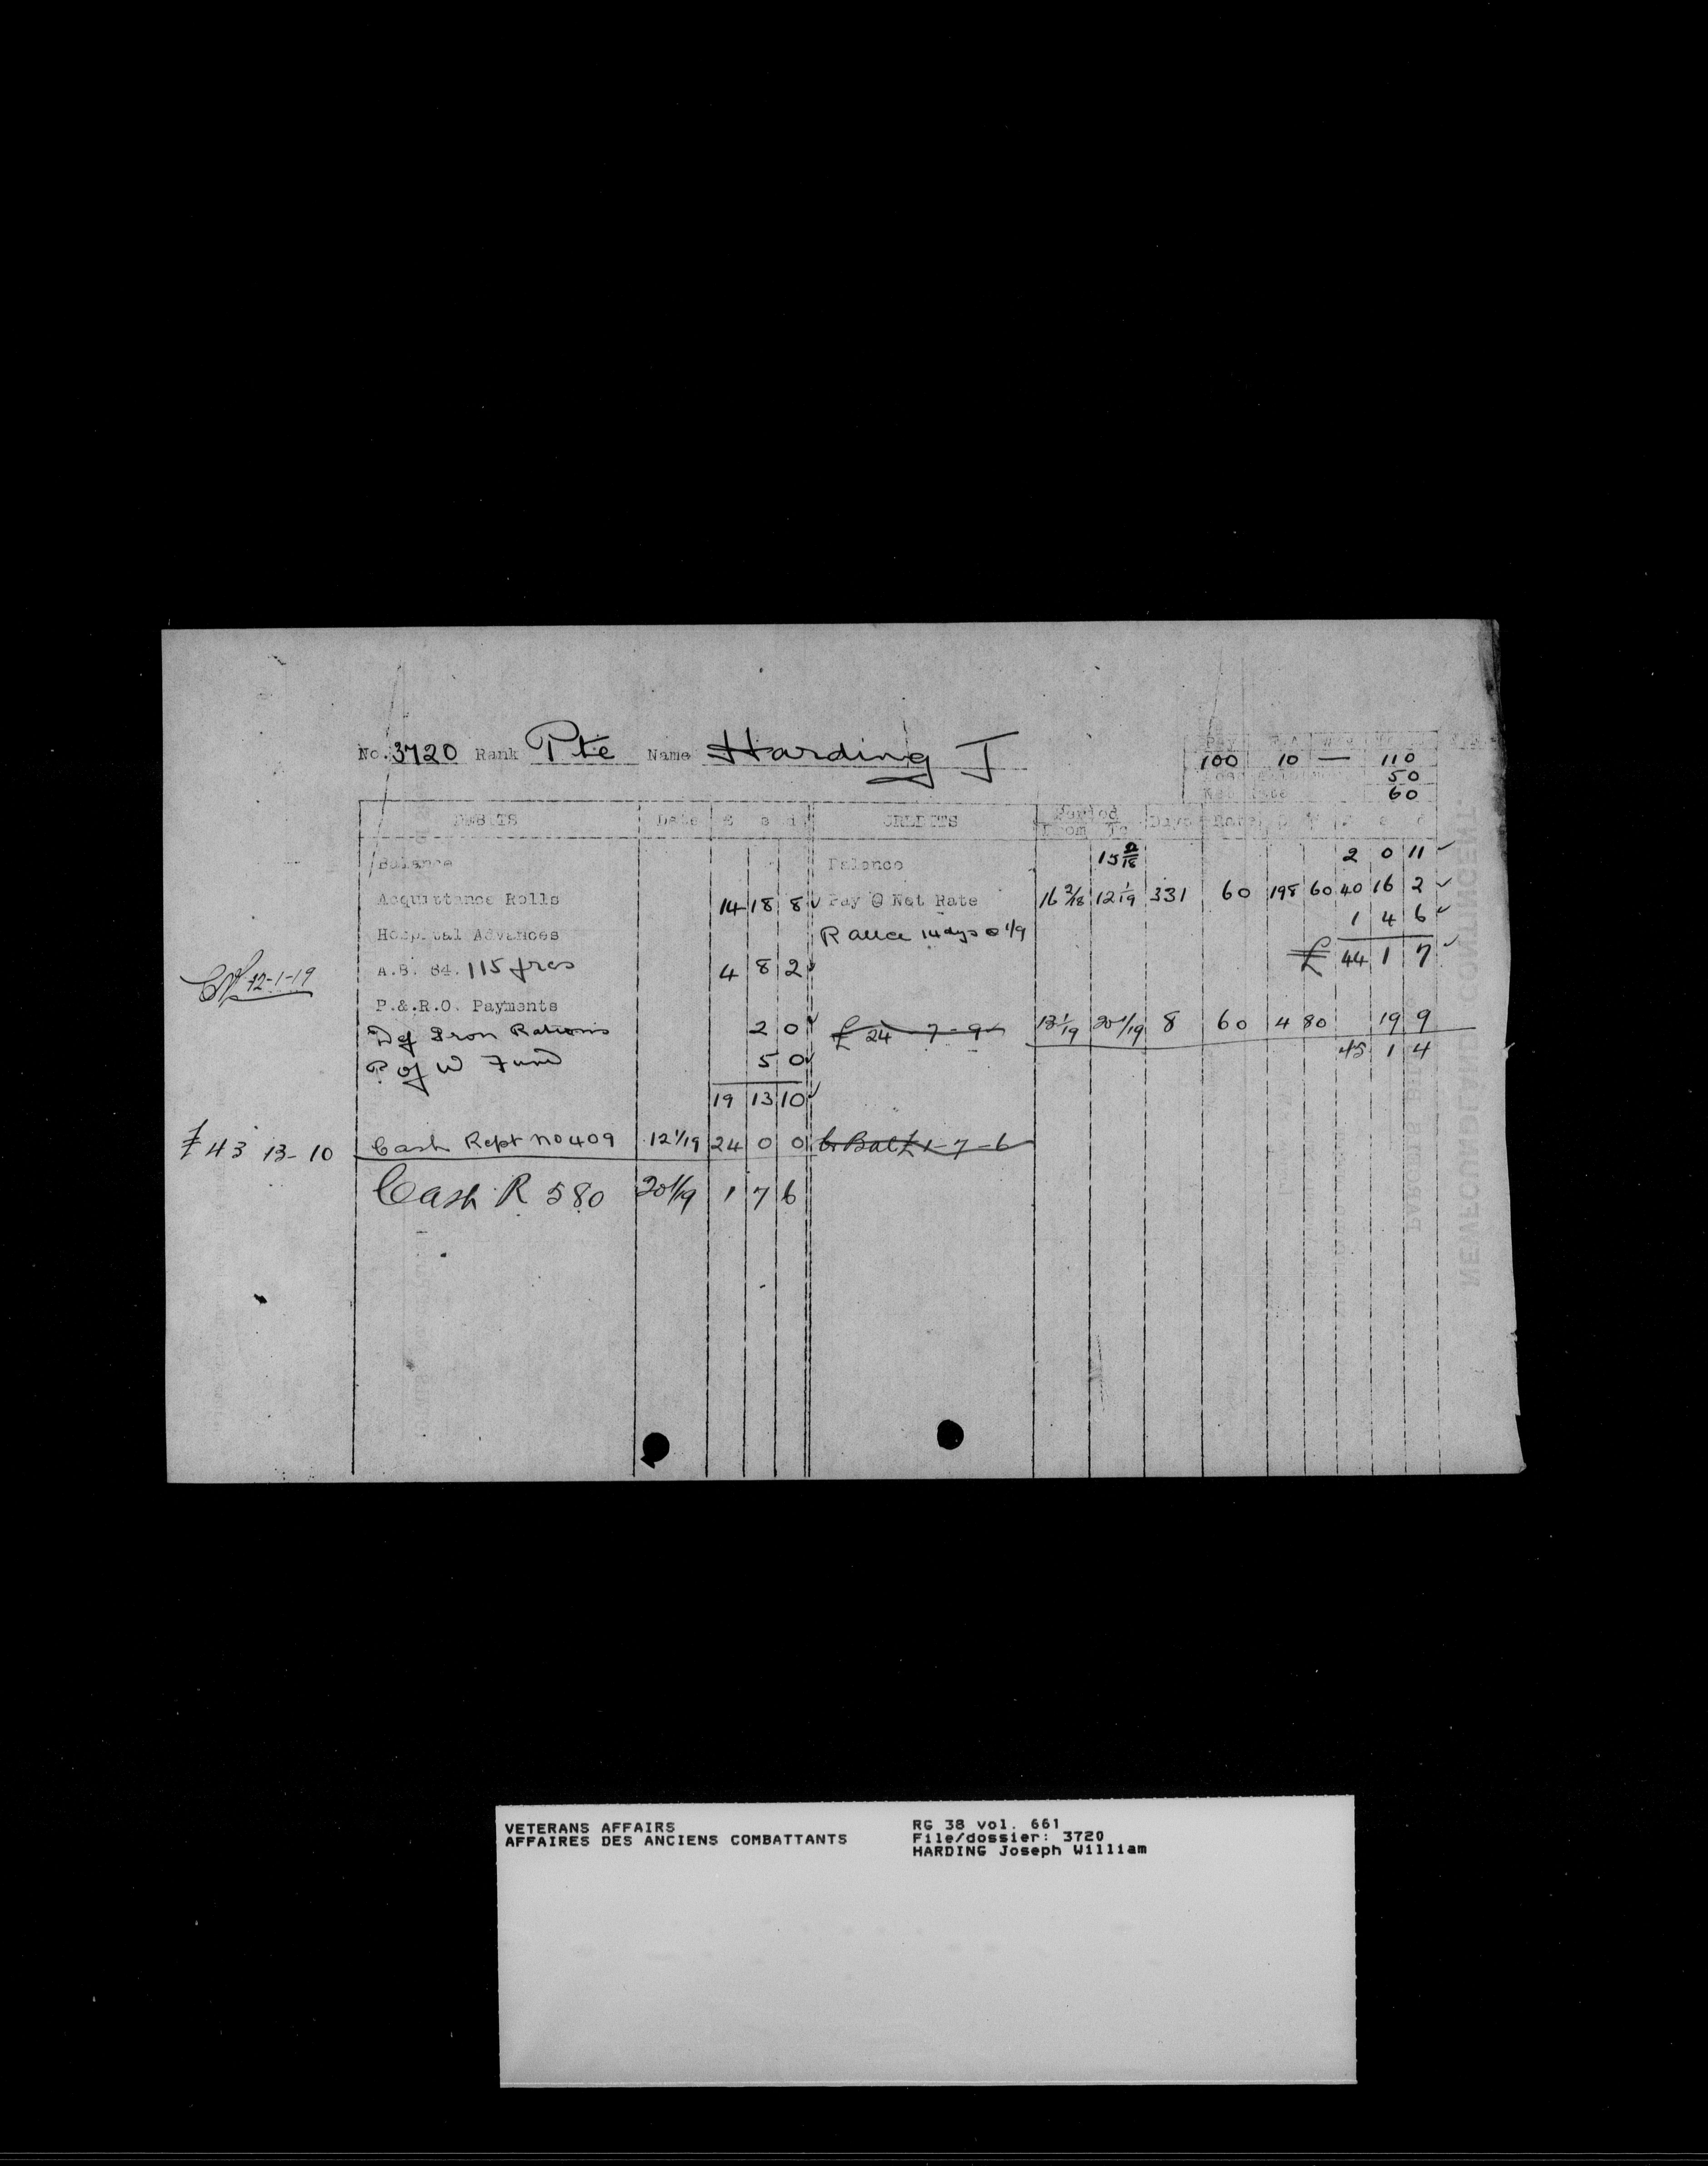 No. 3720 Rank Pte Name Harding J
Pay
100 10 — 110
50
Net Rate 60
DEBITS Date £ s d CREDITS Period From To Days Rate
Balance Balance 15 2/18 2 0 11
Acquittance Rolls 14 18 8 Pay @ Net Rate 16 2/18 12 1/19 331 60 198 60 40 16 2
Hospital Advances R allce 14 dys @ 1/9 1 4 6
A.B. 64. 115 frcs 4 8 2 £ 44 1 7
12-1-19
P.&.R.O. Payments
Def Iron Rations 2 0 £ 24-7-9 13 1/19 20 1/19 8 60 4 80 19 9
P of W Fund 5 0 45 1 4
19 13 10
£ 43 13-10 Cash Rept No 409 12 1/19 24 0 0 Cr Bal £ 1-7-6
Cash R 580 20 1/19 1 7 6
NEWFOUNDLAND CONTINGENT.
VETERANS AFFAIRS
AFFAIRES DES ANCIENS COMBATTANTS
RG 38 vol. 661
File/dossier: 3720
HARDING Joseph William